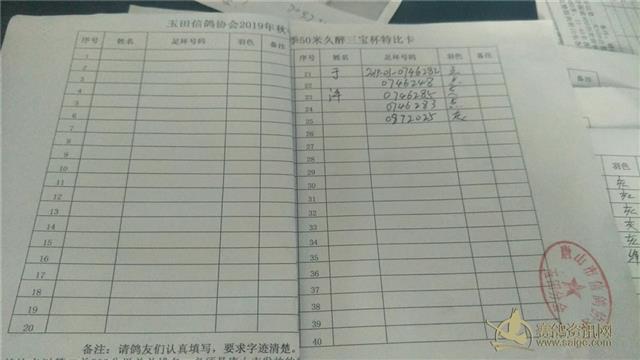 玉田信鸽协会2019年秋季50米久醉三宝杯特比卡
序号 姓名 足环号码 羽色 备注
1
2
3
4
5
6
7
8
9
10
11
12
13
14
15
16
17
18
19
20
备注：请鸽友们认真填写，要求字迹清楚。
序号 姓名 足环号码 羽色 备注
21 于 2019-03-0746282
22 0746248
23 泽 0746285
24 0746283
25 0872025 灰
26
27
28
29
30
31
32
33
34
35
36
37
38
39
40
羽色 备注
灰
红
灰
灰
灰
绛
唐山市信鸽协会
玉田分会
赛鸽资讯网
www.saige.com